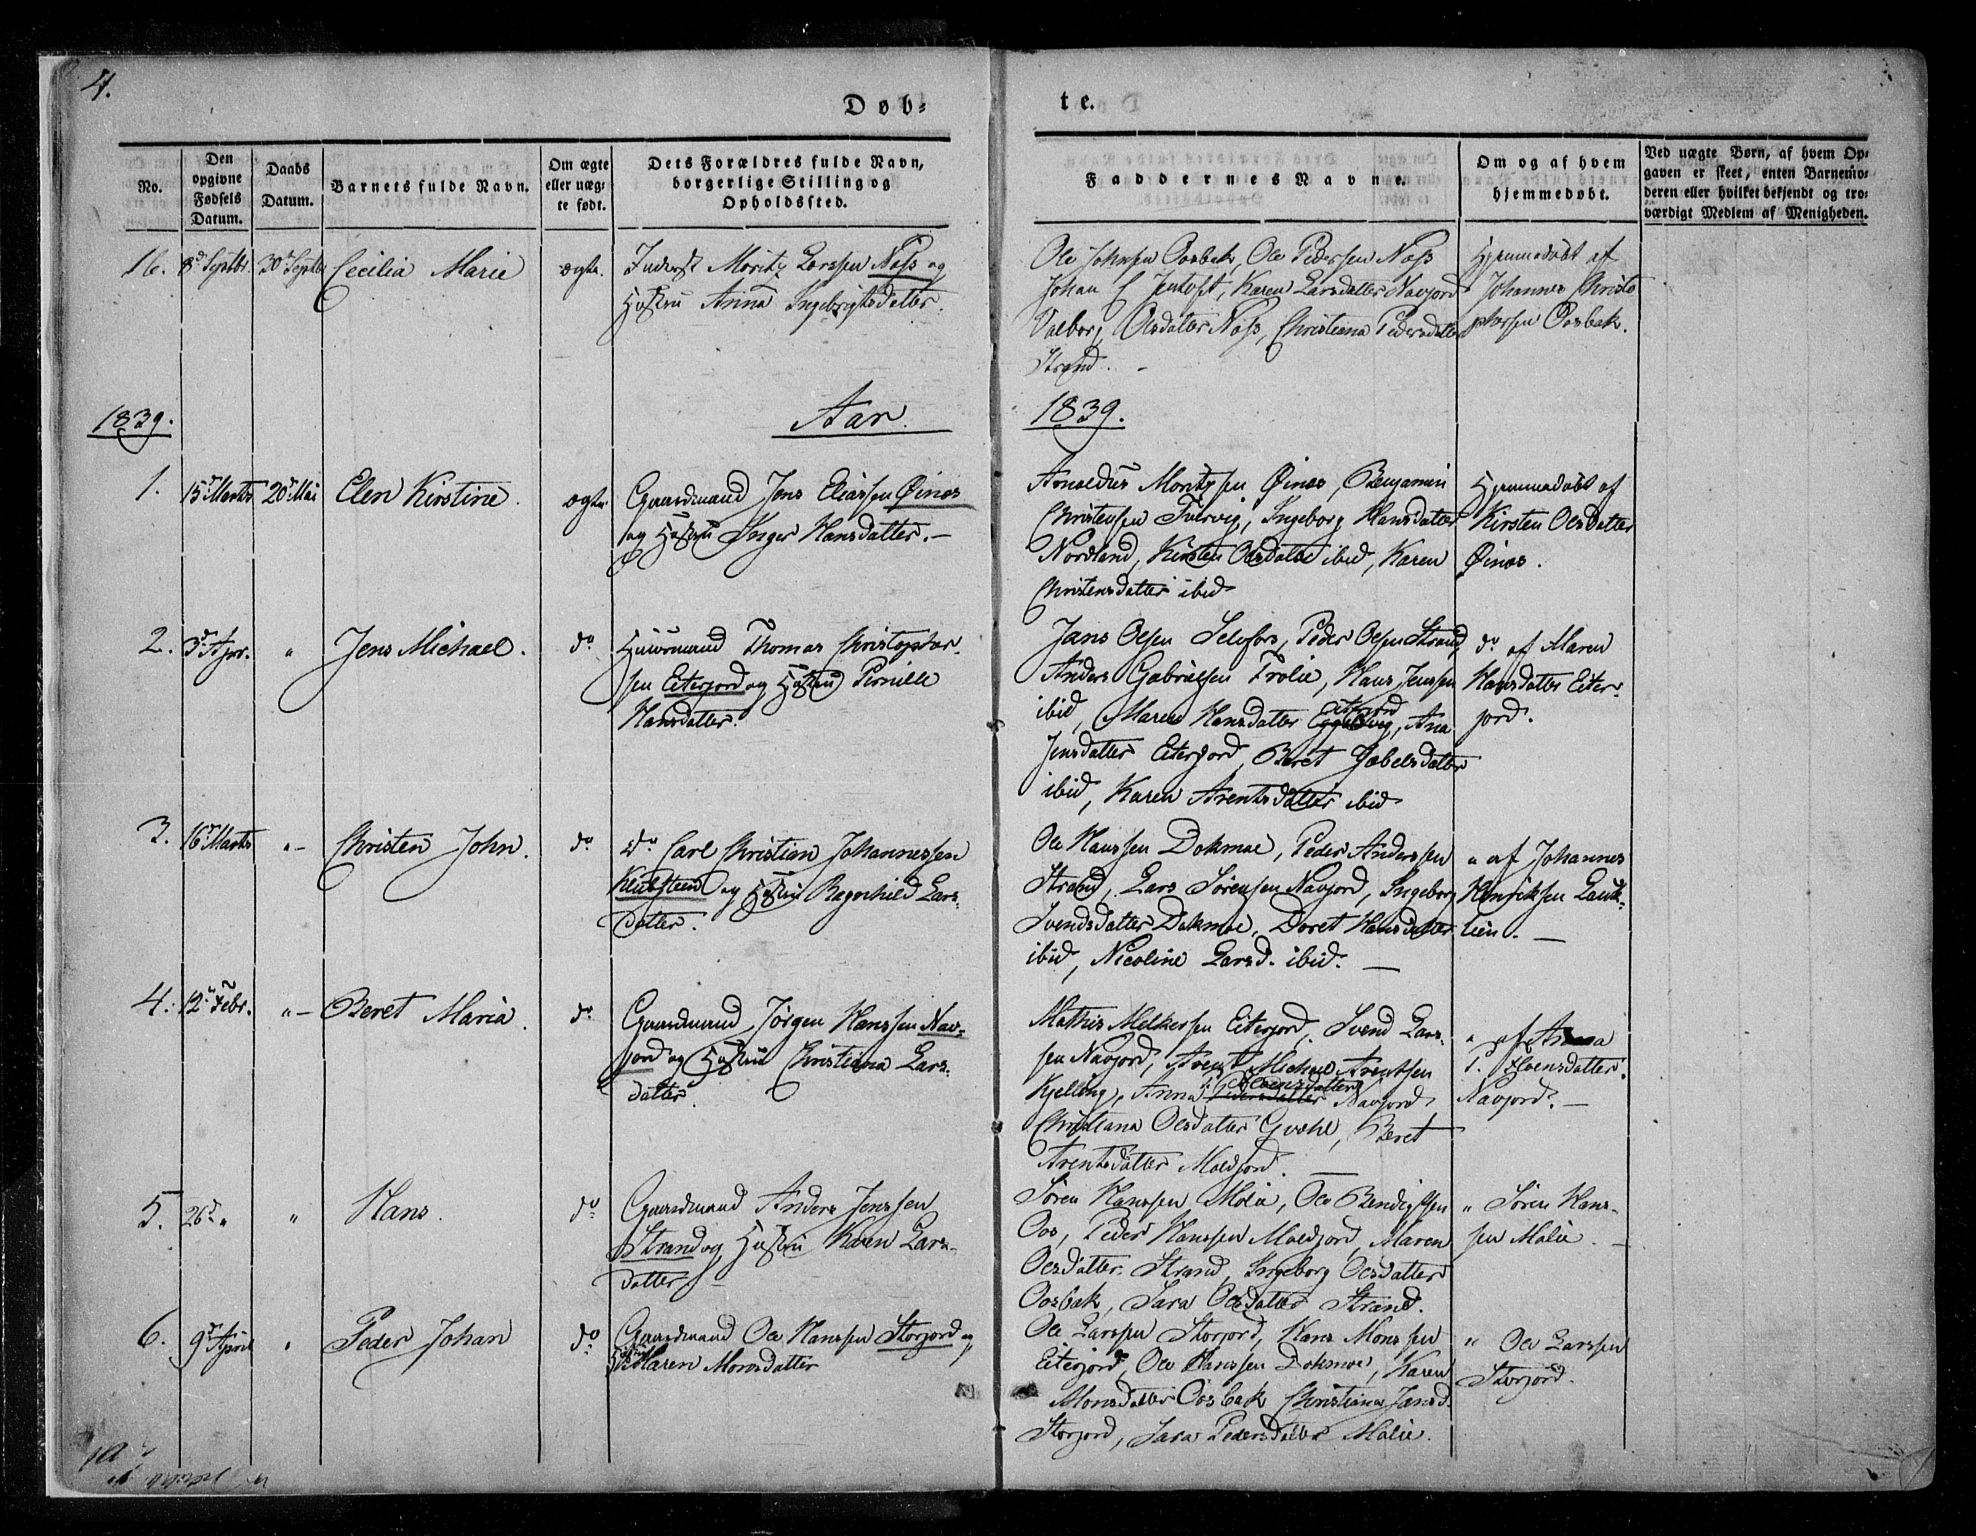 4.
Døb=
te.
No.
Den opgivne Fødsels Datum.
Daabs Datum.
Barnets fulde Navn.
Om ægte eller uæg-te født.
Dets Forældres fulde Navn, borgerlige Stilling og Opholdssted.
Faddernes Navne.
Om og af hvem hjemmedøbt.
Ved uægte Børn, af hvem Op-gaven er skeet, enten Barnemo-deren eller hvilket bekjendt og tro-værdigt Medlem af Menigheden.
16. 8d Septbr. 30d Septbr Cecilia Marie ægte. Inderst Moritz Larssen Næss og
Hustru Anna Ingebrigtsdatter.
Ole Johnsen Oosbak, Ole Pedersen Næss
Johan C Jentoft, Karen Larsdatter Navjord
Valborg Olsdatter Næss, Christiana Pedersdatter
Strand.
Hjemmedøbt af
Johannes Christo
phersen Oosbak.
1839. Aar. 1839.
1. 15d Marts 20d Mai Elen Kirstine. ægte Gaardmand Jens Eliassen Øinæs
og Hustru Inger Hansdatter.
Arnoldus Moritzsen Øinæs, Benjamin
Christensen Tvervig, Ingeborg Hansdatter
Nordland, Kirsten Olsdatter ibid, Karen
Christensdatter ibid
Hjemmedøbt af
Kirsten Olsdatter
Øinæs.
2. 3d Apr. " Jens Michael. do Huusmand Thomas Christopher-
sen Eiterjord og Hustru Pernille
Hansdatter.
Jens Olsen Selfors, Peder Olsen Strand,
Anders Gabrielsen Trolie, Hans Jenssen
ibid, Maren Hansdatter Eiterjord, Ana
Jensdatter Eiterjord, Beret Jæbelsdatter
ibid, Karen Arentsdatter ibid
do af Maren
Hansdatter Eiter-
jord.
3. 16d Marts "- Christen John. do do Carl Christian Johannessen
Klubsteen og Hustru Ragnhild Lars-
datter.
Ole Hanssen Dokmoe, Peder Anderssen
Strand, Lars Sørensen Navjord, Ingeborg
Svendsdatter Dokmoe, Doret Hansdatter
ibid, Nicoline Larsd. ibid.
" af Johannes
Henriksen
4. 12. Febr. "- Beret Maria. do Gaardmand Jørgen Hanssen Nav-
jord og Hustru Christiana Lars-
datter.
Mathis Melkersen Eiterjord, Svend Lars-
sen Navjord, Arent Michael Arentsen
Kjelling, Anna Navjord,
Christiana Olsdatter Beret
Arentsdatter Moldjord.
" af Anna
Navjord.
5. 26d " " Hans. do Gaardmand Anders Jenssen
Strand og Hustru Karen Lars-
datter.
Søren Hanssen Molie, Ole Bendigtsen
Oos, Peder Hanssen Moldjord, Maren
Olsdatter Strand, Ingeborg Olsdatter
Oosbak, Sara Olsdatter Strand.
" Søren Hans-
sen Molie.
6. 9d April " Peder Johan do Gaardmand Ole Hanssen Storjord og
Hustru Maren Monsdatter
Ole Larssen Storjord, Hans Monssen
Eiterjord, Ole Hanssen Dokmoe, Karen
Monsdatter Oosbak Christiana Jensd.
Storjord, Sara Pedersdatter Molie.
" Ole Larssen
Storjord.